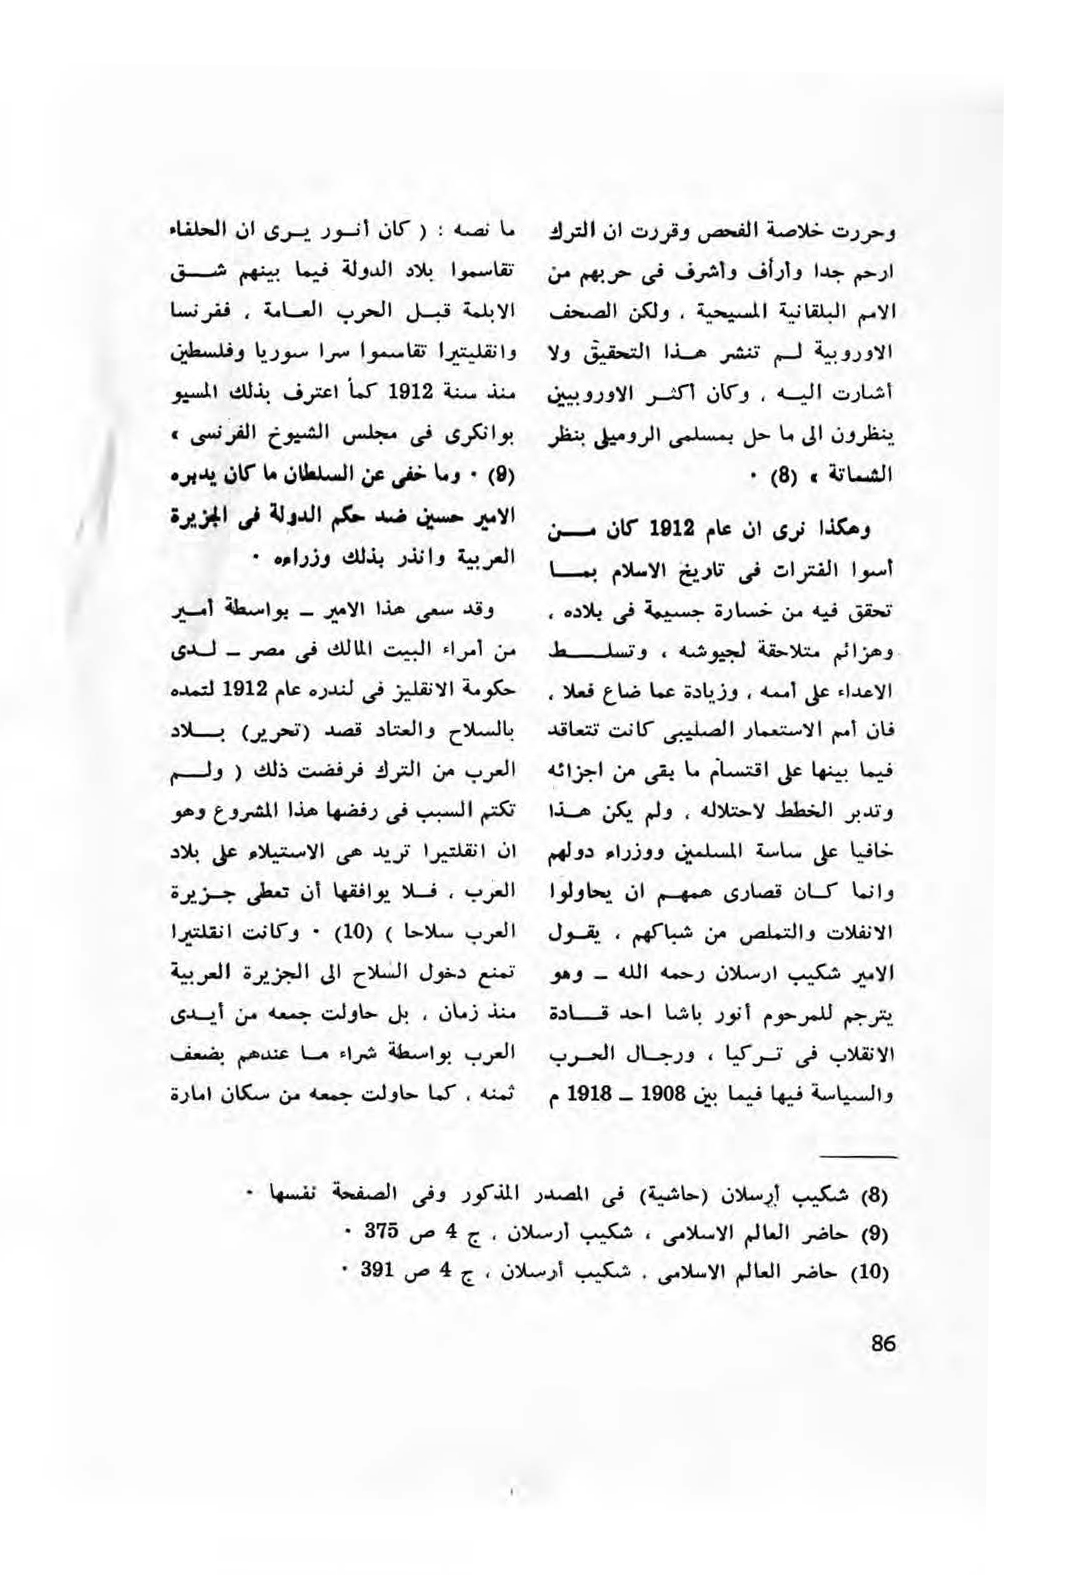 وحررت خلاصة الفحص وقررت ان الترك
ارحم جدا وأرأف وأشرف فى حربهم من
الامم البلقانية المسيحية ، ولكن الصحف
الاوروبية لـم تنشر هـــذا التحقيق ولا
أشارت اليـــه ، وكان أكثـــر الاوروبيين
ينظرون الى ما حل بمسلمى الروميلى بنظر
الشماتة » (8) ·
وهكذا نرى ان عام 1912 كان مـــن
أسوا الفترات فى تاريخ الاسلام بمـــا
تحقق فيه من خسارة جسيمة فى بلاده ،
وهزائم متلاحقة لجيوشه ، وتسلـــط
الاعداء على أممه ، وزيادة عما ضاع فعلا ،
فان أمم الاستعمار الصليبى كانت تتعاقد
فيما بينها على اقتسام ما بقى من اجزائه
وتدبر الخطط لاحتلاله ، ولم يكن هـــذا
خافيا على ساسة المسلمين ووزراء دولهم
وانما كـــان قصارى همهـــم ان يحاولوا
الانفلات والتملص من شباكهم ، يقـــول
الامير شكيب ارسلان رحمه الله ــ وهو
يترجم للمرحوم أنور باشا احد قـــادة
الانقلاب فى تـــركيا ، ورجـــال الحـــرب
والسياسة فيها فيما بين 1908 ــ 1918 م
ما نصه : ( كان أنـــور يـــرى ان الحلفاء
تقاسموا بلاد الدولة فيما بينهم شـــق
الابلمة قبـــل الحرب العـــامة ، ففرنسا
وانقليتيرا تقاسموا سرا سوريا وفلسطين
منذ سنة 1912 كما اعترف بذلك المسيو
بوانكرى فى مجلس الشيوخ الفرنسى »
(9) · وما خفى عن السلطان ما كان يدبره
الامير حسين ضد حكم الدولة فى الجزيرة
العربية وانذر بذلك وزراءه ·
وقد سعى هذا الامير ــ بواسطة أمـــير
من أمراء البيت المالك فى مصر ــ لـــدى
حكومة الانقليز فى لندره عام 1912 لتمده
بالسلاح والعتاد قصد (تحرير) بـــلاد
العرب من الترك فرفضت ذلك ( ولـــم
تكتم السبب فى رفضها هذا المشروع وهو
ان انقلتيرا تريد هى الاستيلاء على بلاد
العرب ، فـــلا يوافقها أن تعطى جـــزيرة
العرب سلاحا ) (10) · وكانت انقلتيرا
تمنع دخول السلاح الى الجزيرة العربية
منذ زمان ، بل حاولت جمعه من أيـــدى
العرب بواسطة شراء مـــا عندهم بضعف
ثمنه ، كما حاولت جمعه من سكان امارة
(8) شكيب أرسلان (حاشية) فى المصدر المذكور وفى الصفحة نفسها ·
(9) حاضر العالم الاسلامى ، شكيب أرسلان ، ج 4 ص 375 ·
(10) حاضر العالم الاسلامى ، شكيب أرسلان ، ج 4 ص 391 ·
86